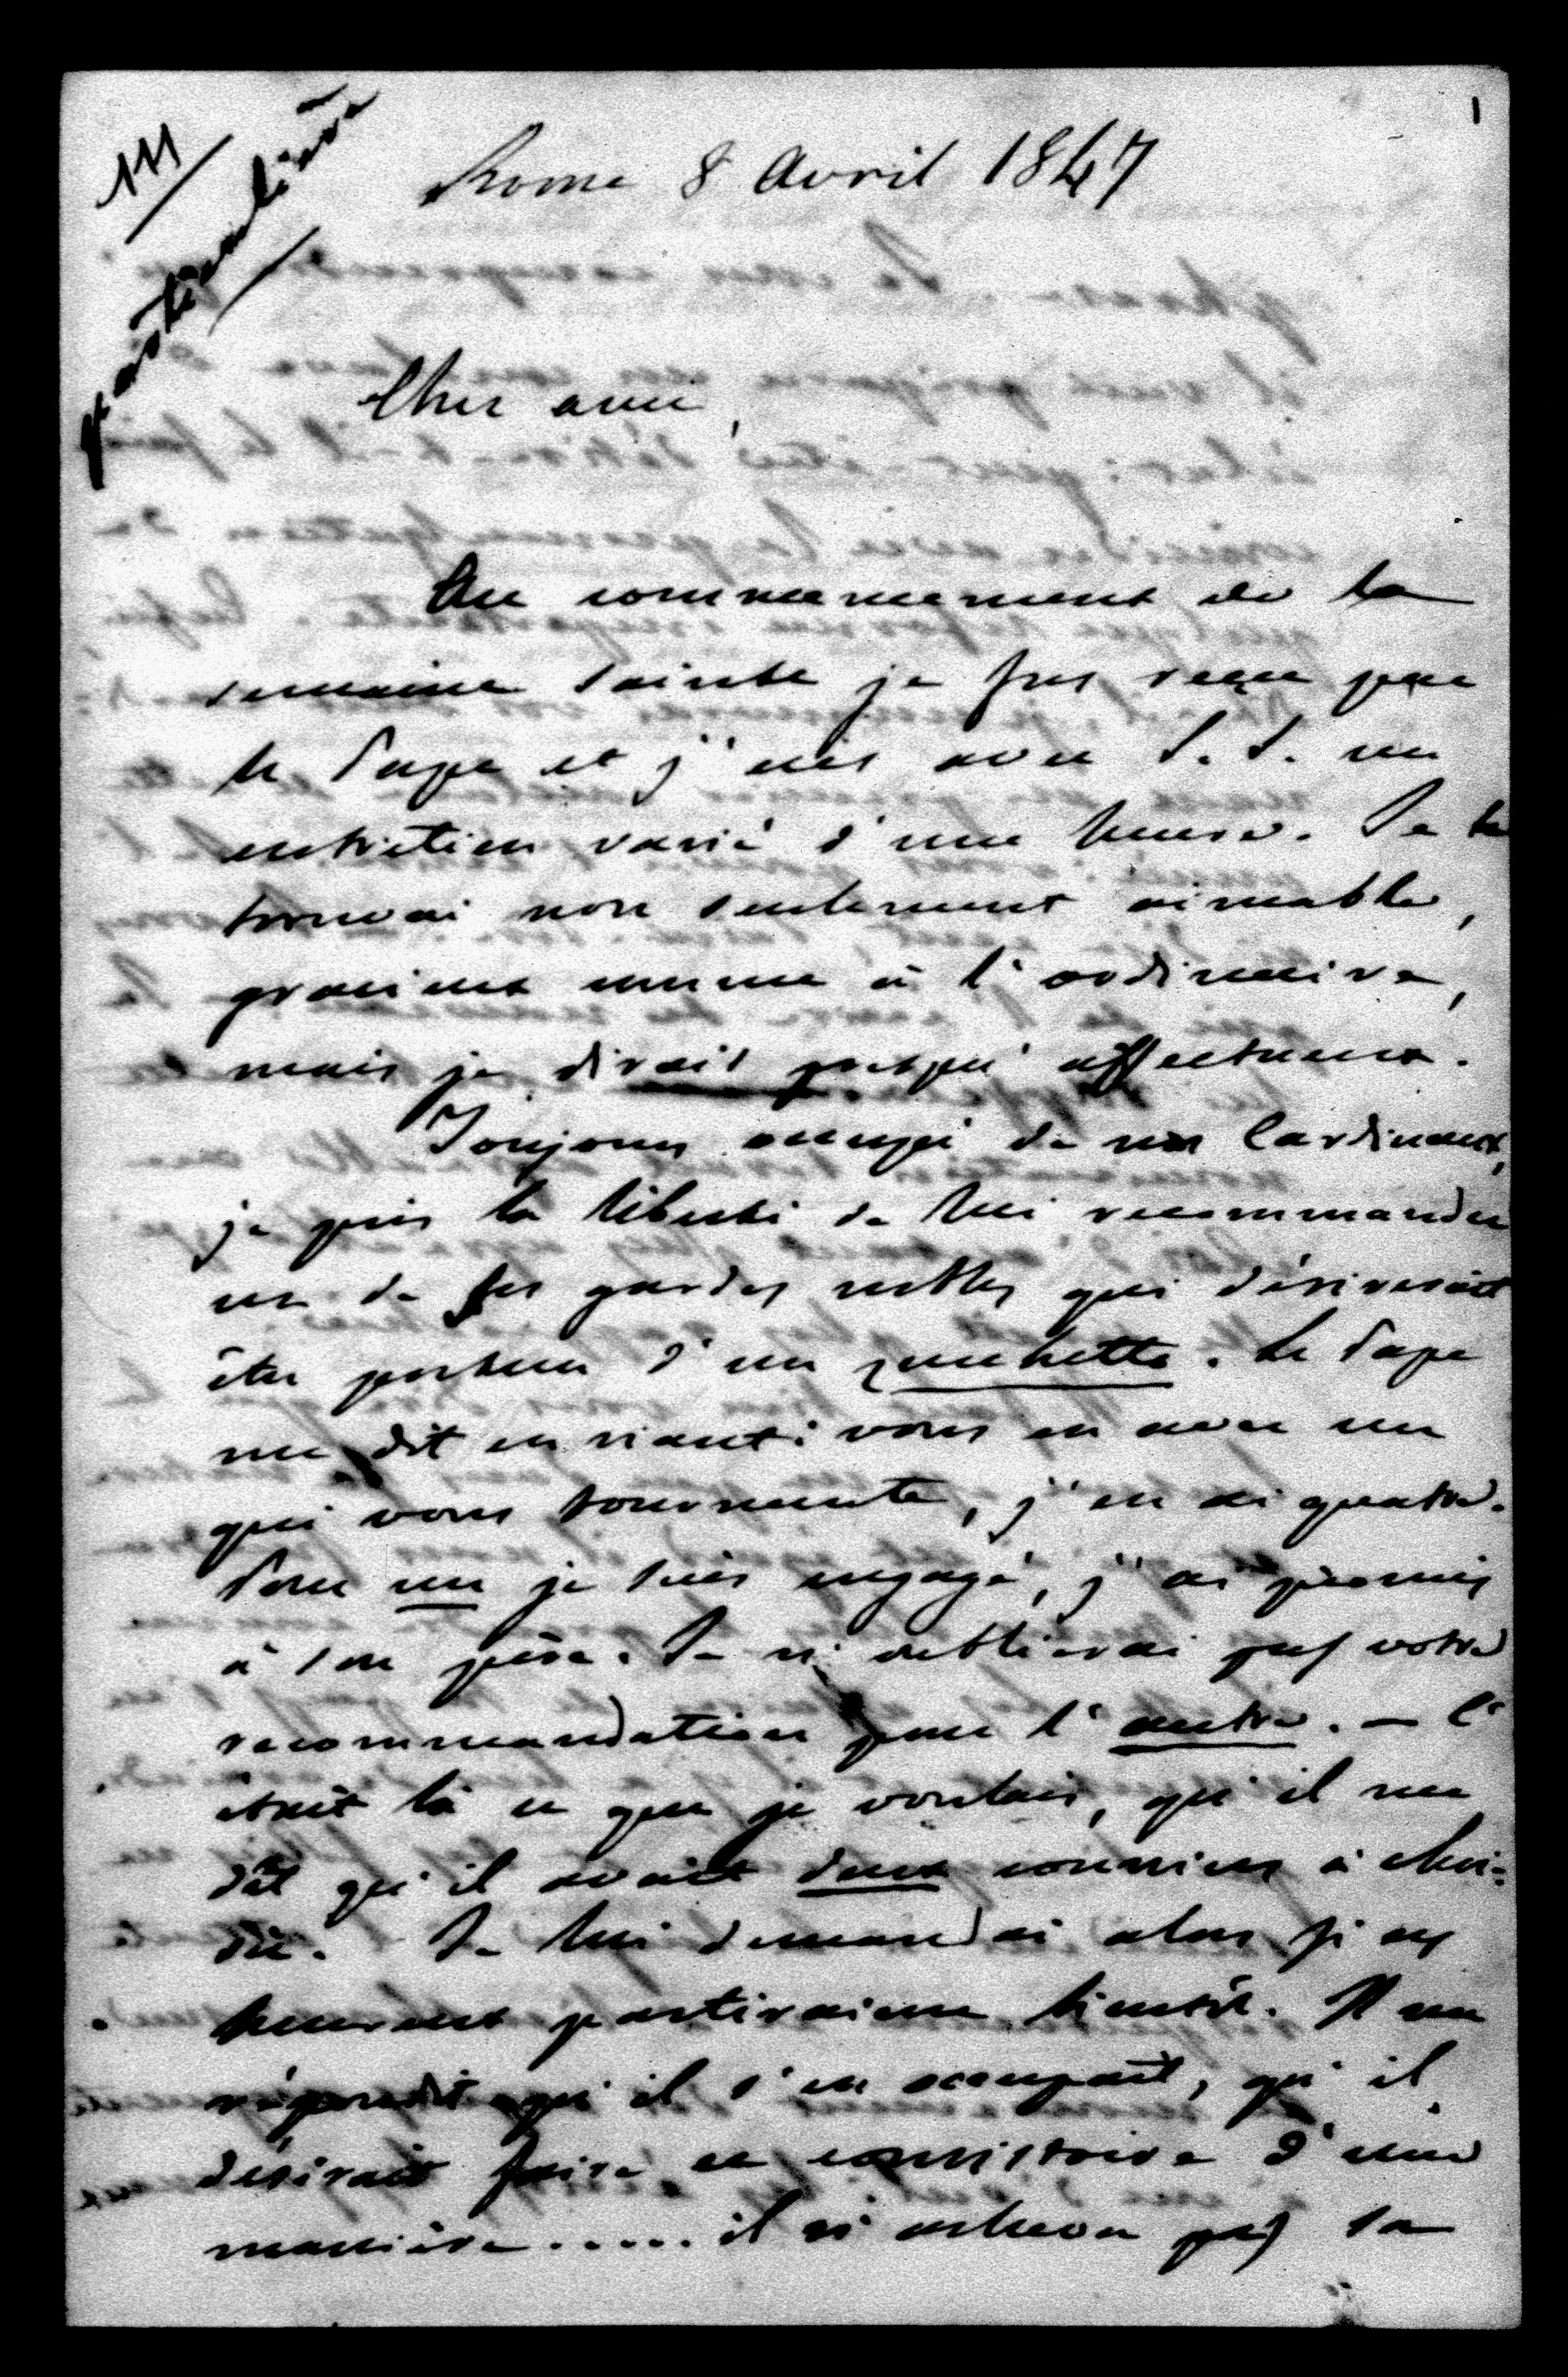 111
particulière
1
Rome 8 Avril 1847
Cher ami,
Au commencement de la
semaine sainte je fus reçu par
le Pape et j'eus avec S. S. un
entretien varié d'une heure. Je le
trouvai non seulement aimable,
gracieux comme à l'ordinaire,
mais je dirais presqu'affectueux.
Toujours occupé de nos Cardinaux,
je pris la liberté de lui recommander
un de ses gardes nobles qui désirerait
être porteur d'un zucchetto. Le Pape
me dit en riant: vous en avez un
qui vous tourmente, j'en ai quatre.
Pour un je suis engagé, j'ai promis
à son père. Je n'oublierai pas votre
recommandation pour l'autre. — C'
était là ce que je voulais, qu'il me
dît qu'il avait deux courriers à choi-
sir. Je lui demandai alors si ces
heureux partiraient bientôt. Il me
répondit qu'il s'en occupait, qu'il
désirait faire ce consistoire d'une
manière ..... il n'acheva pas sa